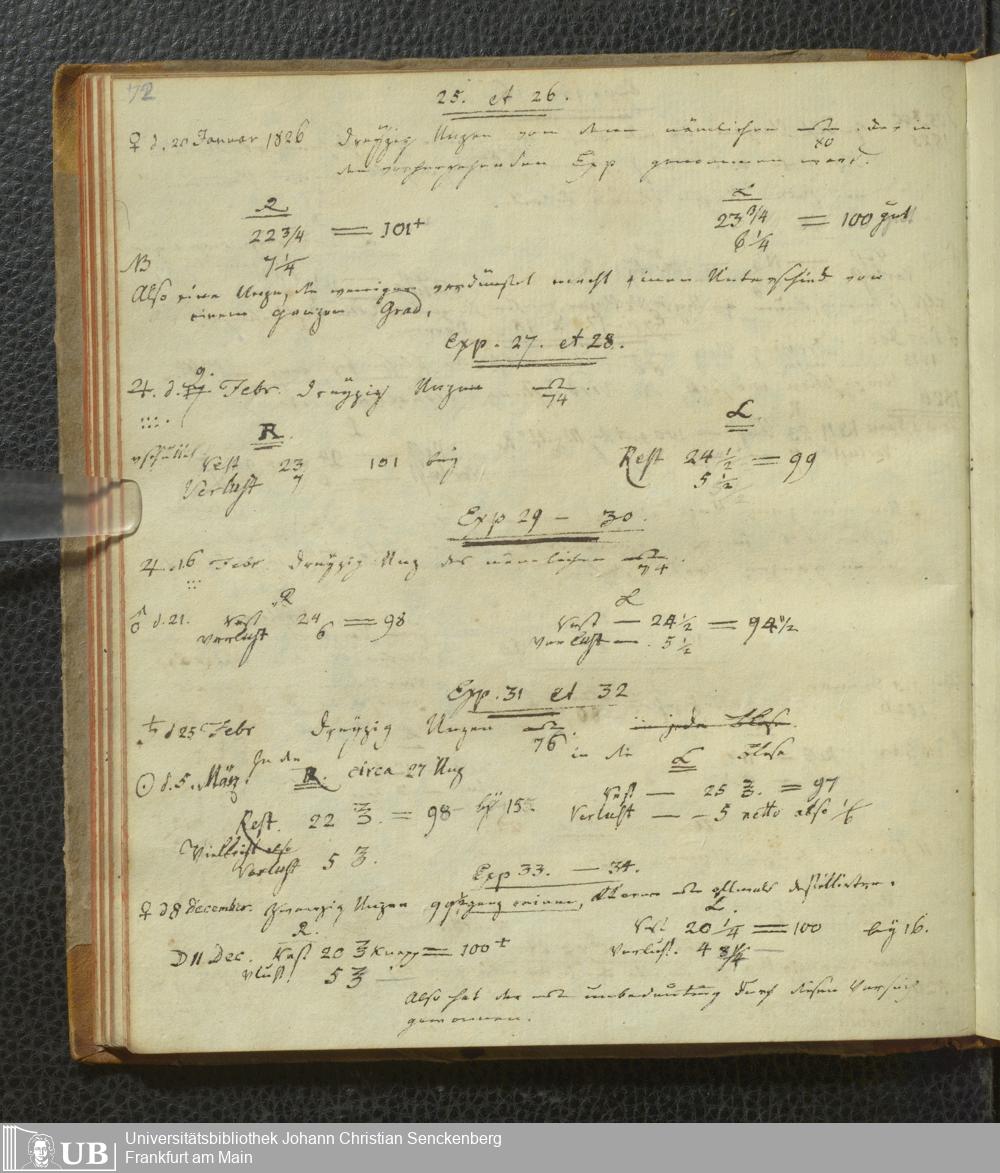 72
25. et 26.
♀ d. 20 Januar 1826 Dreÿzig Unzen von dem nämlichen der in
80
den vorhergehenden Exp genommen ward.
R L
22 3/4 = 101+ 23 3/4 = 100 gut
NB 7 1/4 6 1/4
Also eine Unze, die weniger verdünstet macht einen Unterschied von
einem ganzen Grad.
Exp. 27. et 28.
9.
♃. d. Febr. Dreÿzig Unzen
74
R. L
Rest 23 101 beÿ Rest 24 1/2 = 99
Verlust 7 5 1/2
Exp 29 – 30.
♃. d 16 Febr. Dreÿzig Unz des nämlichen
74
R L
♂ d. 21. Rest 24 = 98 Rest – 24 1/2 = 94 1/2
Verlust 6 Verlust – 5 1/2
Exp. 31 et 32
♄ d 25 Febr Dreÿzig Unzen in jede Blase.
76 in die Blase
In der L
☉ d. 5. März R. circa 27 Unz
Rest – 25 ℥. = 97
Rest. 22 ℥. = 98 beÿ 15 Verlust – – 5 netto also 1/6
Vielleicht also
Verlust 5 ℥.
Exp 33. – 34.
♀ d 8 December. Zwanzig Unzen destillirten.
R. L.
☽ 11 Dec. Rest 20 ℥ knapp = 100+ Rest 20 1/4 = 100 beÿ 16.
Vlust 5 ℥ – Verlust. 4 3/4 –
Also hat der unbedeutend durch diesen Versuch
gewonnen.
UB
Universitätsbibliothek Johann Christian Senckenberg
Frankfurt am Main